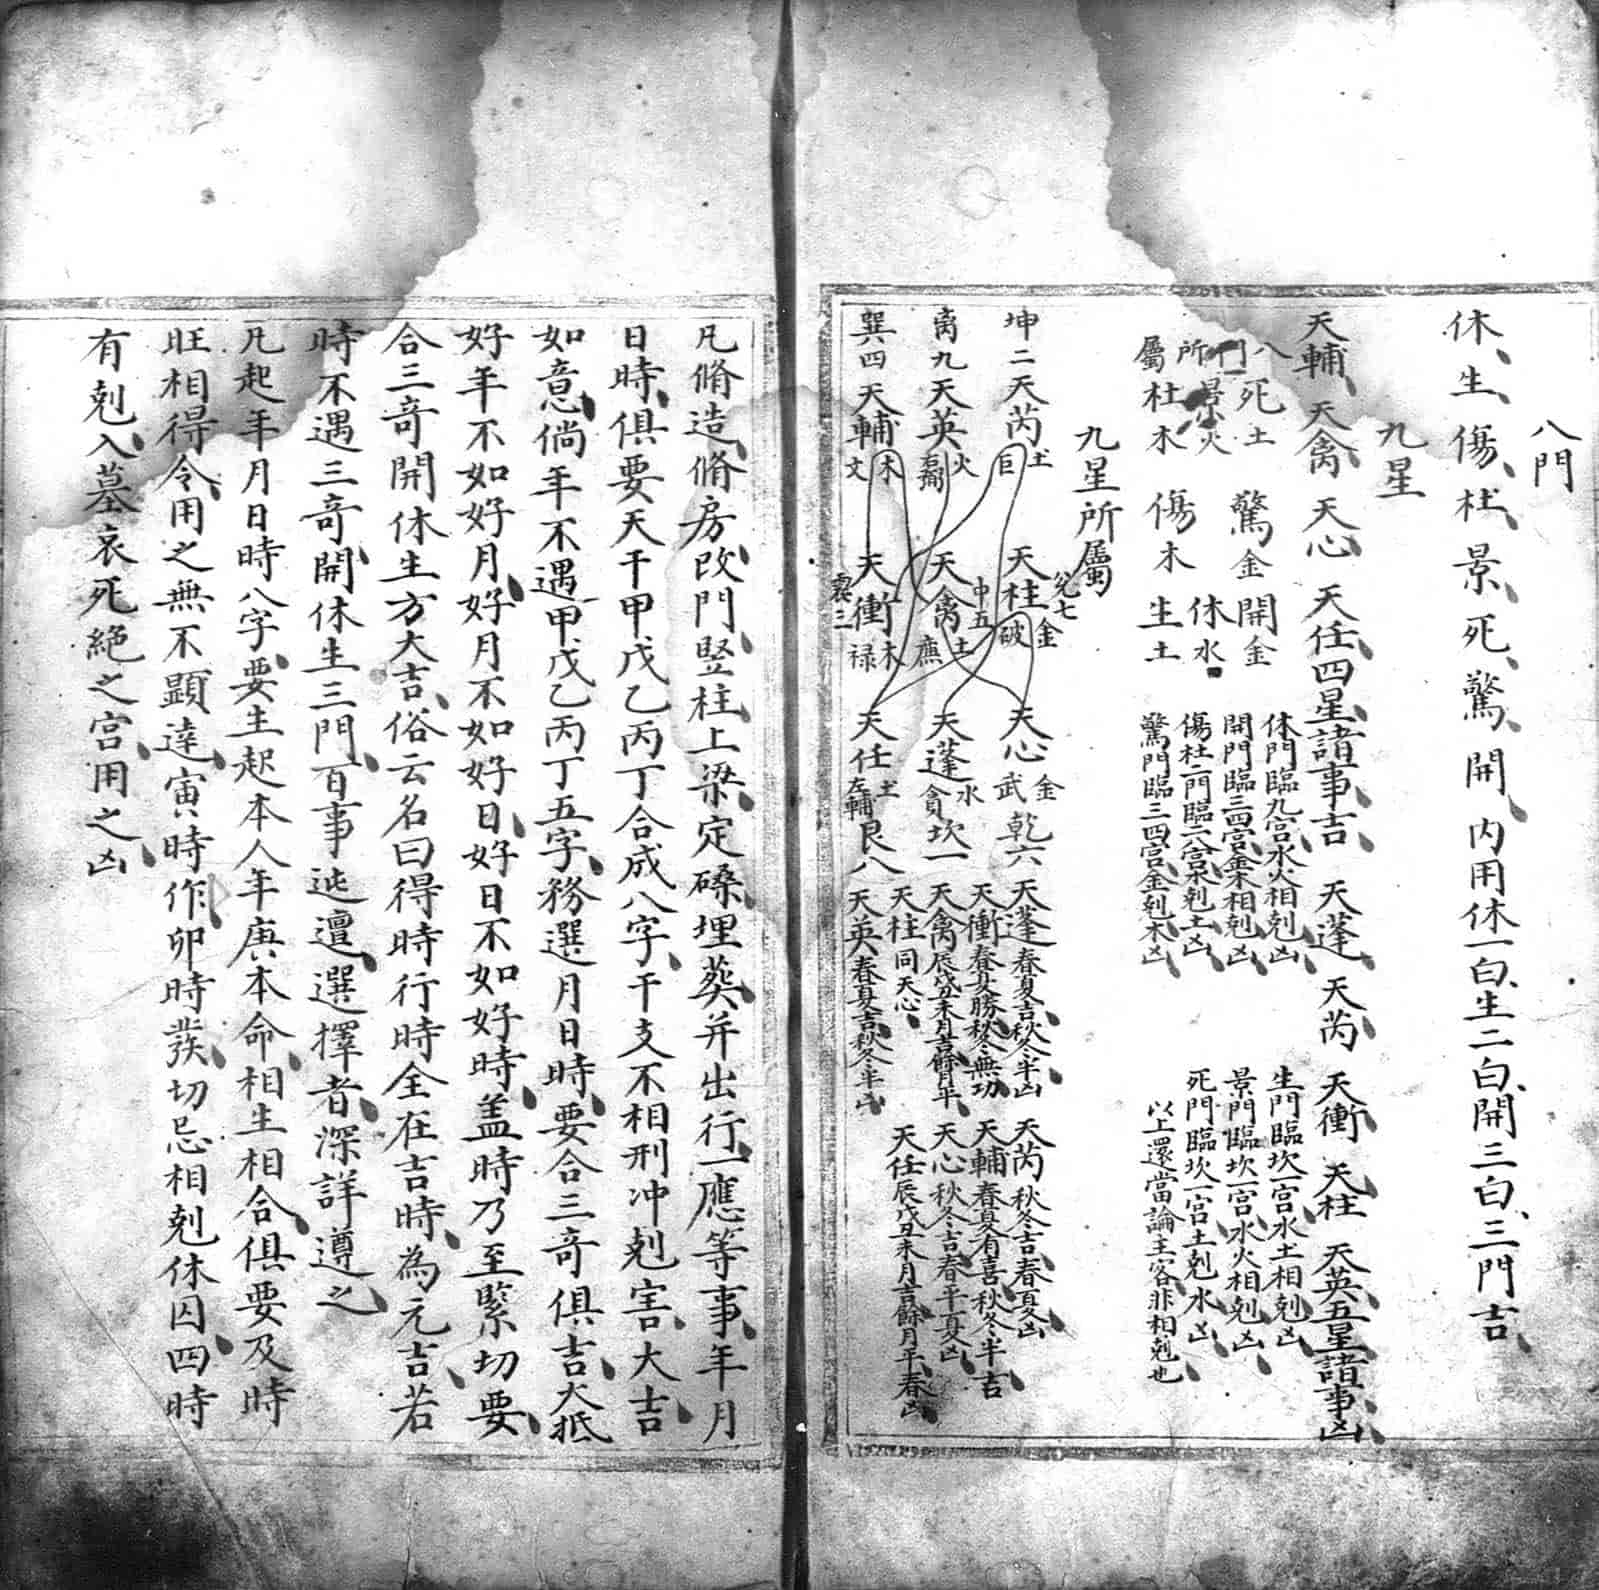 八門
休、生、傷、杜、景、死、驚、開、內用休一白、生二白、開三白、三門吉、
九星
天輔、天禽、天心、天任四星諸事吉、天蓬、天芮、天衝、天柱、天英五星諸事凶、
八門所屬
死土 驚金 開金
景火 休水
杜木 傷木 生土
休門臨九宮水火相剋凶、
開門臨三四宮金木相剋凶、
傷杜二門臨二八宮木剋土凶、
驚門臨三四宮金剋木凶、
生門臨坎一宮水土相剋凶、
景門臨坎一宮水火相剋凶、
死門臨坎一宮土剋水凶、
以上還當論主客非相剋也
九星所屬
坤二天芮 土 巨 天柱 兌七 金 破 天心 金 武 乾六
離九天英 火 天禽 中五 土 廉 天蓬 水 貪 坎一
巽四天輔 木 文 天衝 震三 木 祿 天任 土 左輔 艮八
天蓬春夏吉秋冬半凶、天芮秋冬吉春夏凶、
天衝春夏勝秋冬無功 天輔春夏有喜秋冬半吉、
天禽辰戌丑未月吉餘月平、天心秋冬吉春平夏凶、
天柱同天心、天任辰戌丑未月吉餘月平春凶、
天英春夏吉秋冬半凶、
凡脩造、脩房改門、竪柱、上梁、定磉埋葬、并出行、一應等事、年月
日時、俱要天干甲戊乙丙丁合成八字、干支不相刑冲剋害、大吉、
如意、倘年不遇甲戊乙丙丁五字、務選月日時、要合三奇俱吉、大抵
好年不如好月、好月不如好日、好日不如好時、盖時乃至緊切要、
合三奇開休生方大吉、俗云名曰得時行時全在吉時、為元吉、若
時不遇三奇、開休生三門、百事迍邅、選擇者、深詳遵之、
凡起年月日時八字、要生起本人年庚本命、相生相合、俱要及時
旺相得令、用之無不顯達、寅時作、卯時發、切忌相剋休囚、四時
有剋、入墓衰死絕之宮、用之凶、